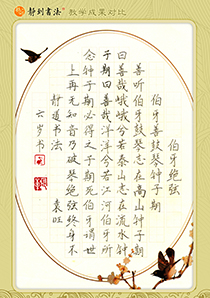 静到书法 教学成果对比
伯牙绝弦
伯牙善鼓琴钟子期
善听伯牙鼓琴志在高山钟子期
曰善哉峨峨兮若泰山志在流水钟
子期曰善哉洋洋兮若江河伯牙所
念钟子期必得之子期死伯牙谓世
上再无知音乃破琴绝弦终身不
静道书法 袁旺
六岁书